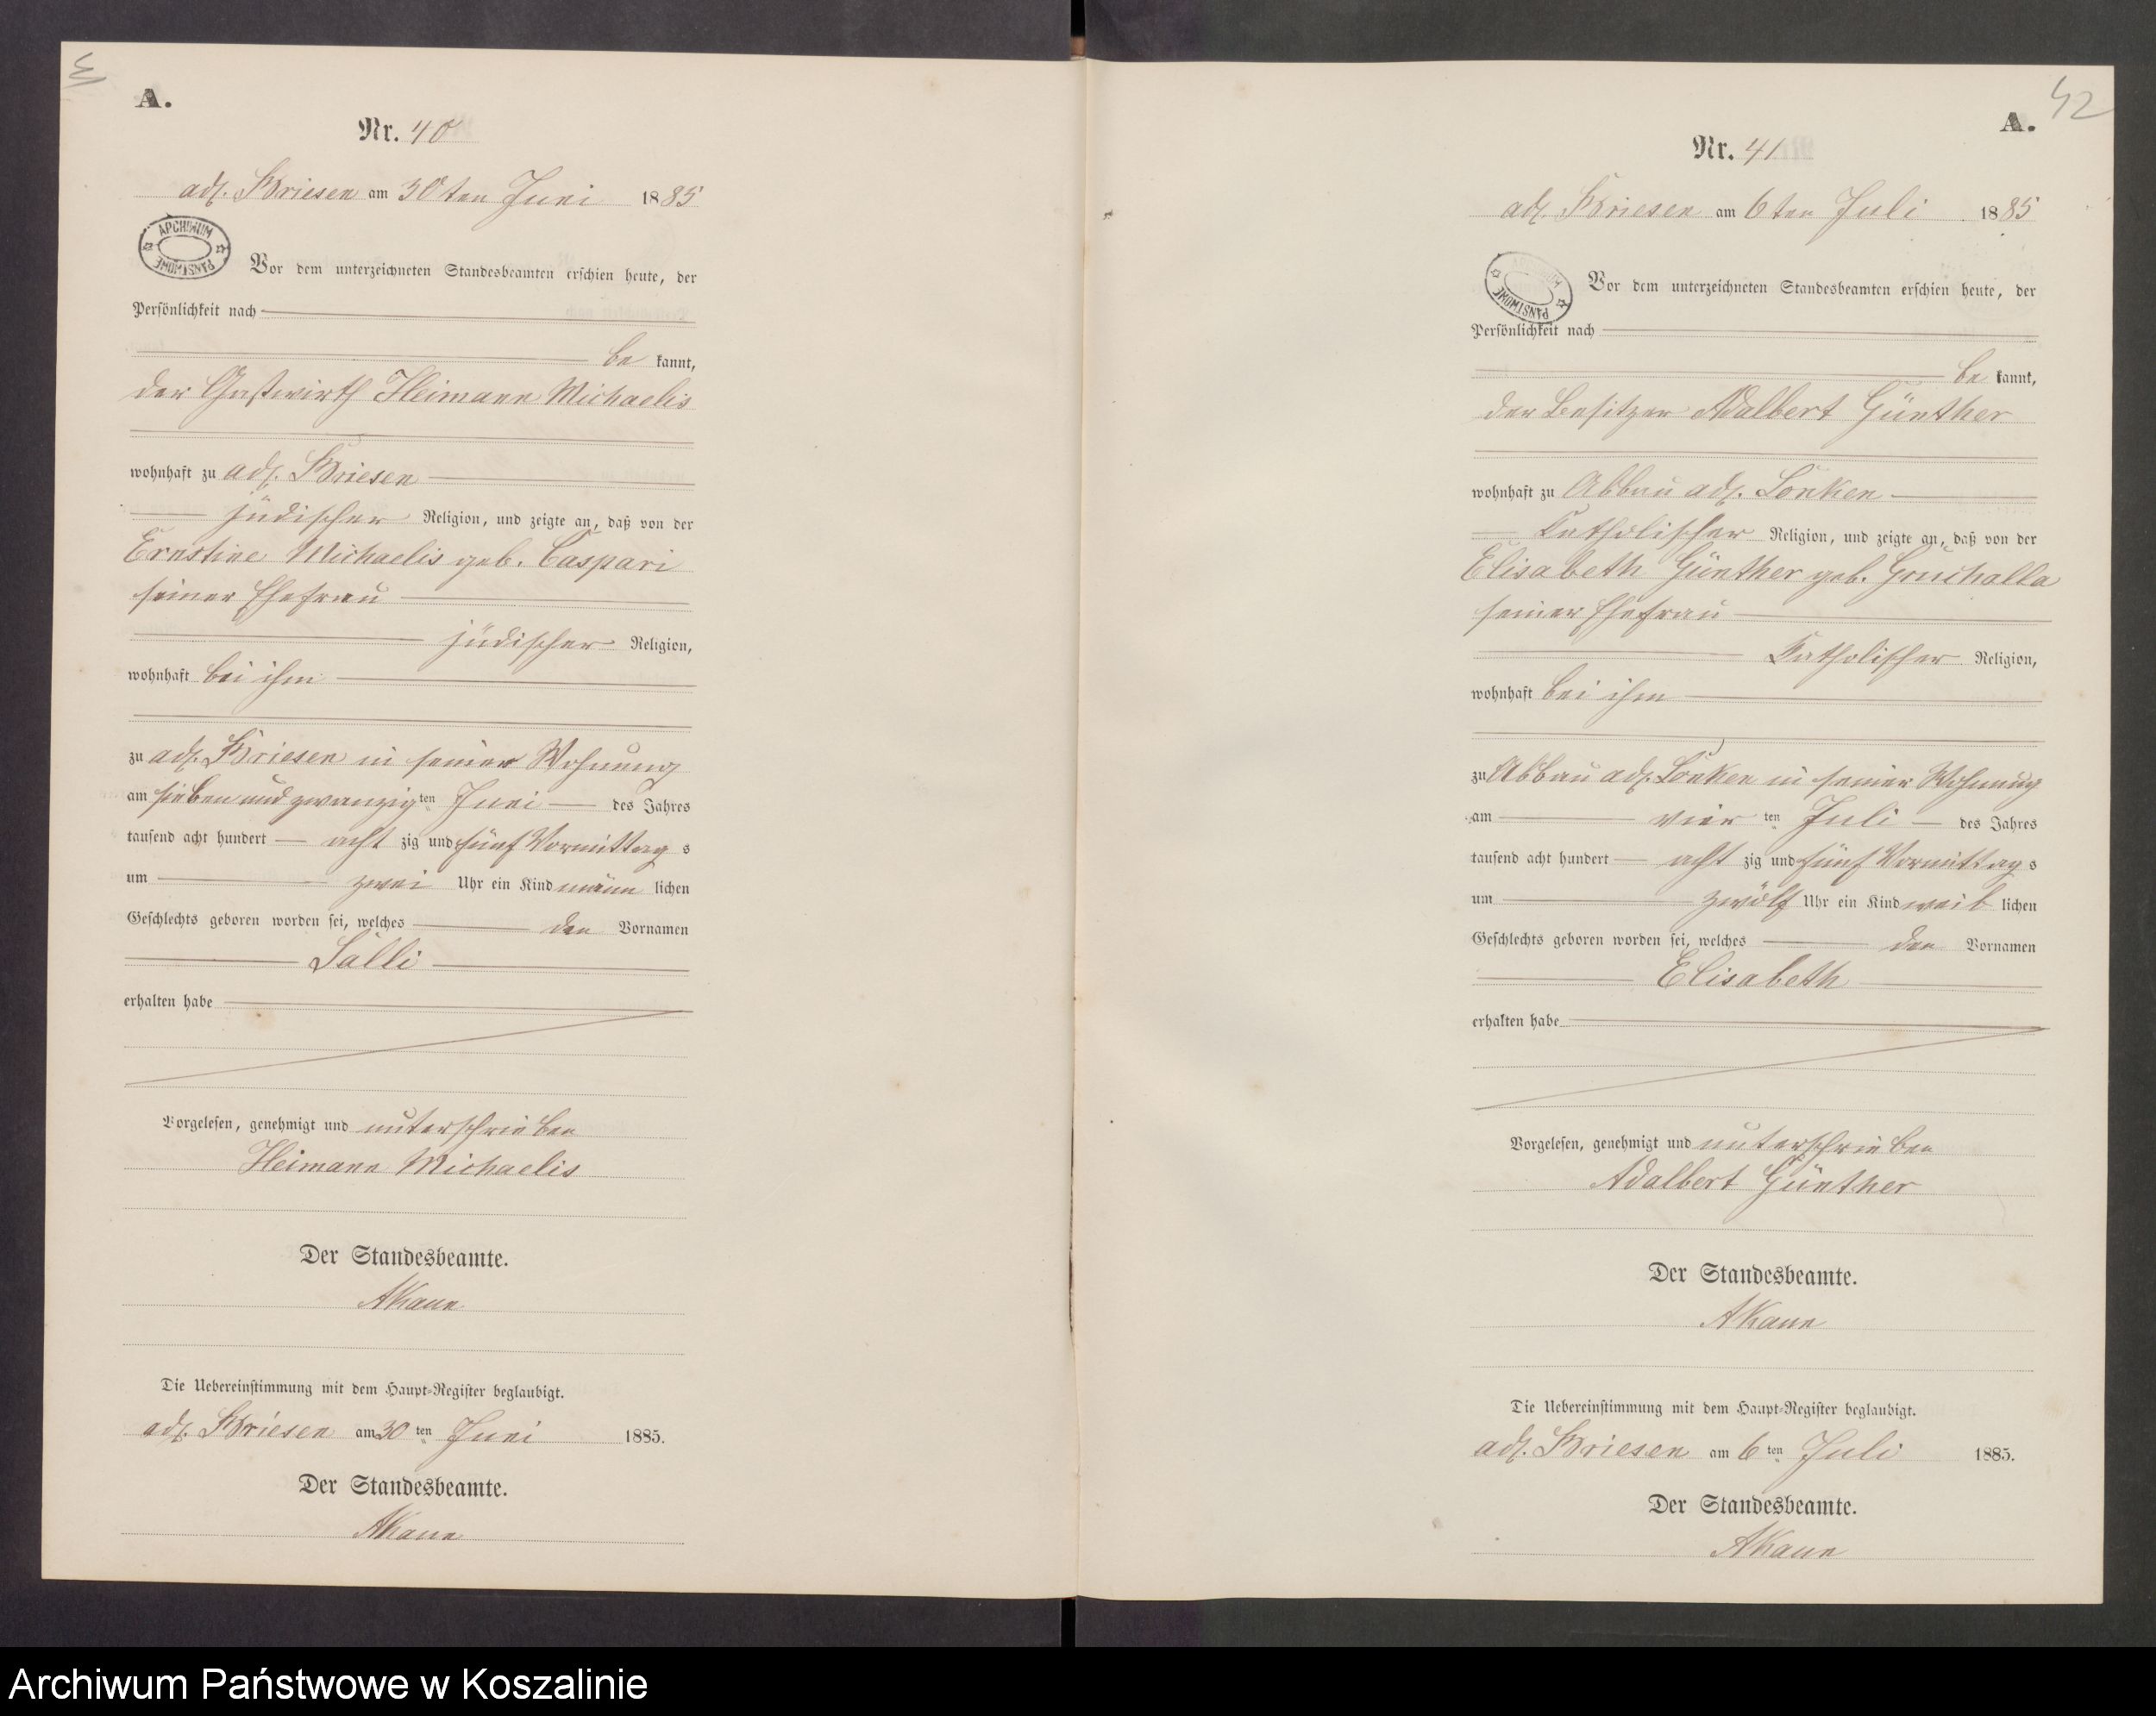 A.
Nr. 40
adl. Briesen am 30ten Juni 1885
ARCHIWUM PAŃSTWOWE
Vor dem unterzeichneten Standesbeamten erschien heute, der
Persönlichkeit nach
be kannt,
der Gastwirth Heimann Michaelis
wohnhaft zu adl. Briesen
jüdischer Religion, und zeigte an, daß von der
Ernstine Michaelis geb. Caspari
seiner Ehefrau
jüdischer Religion,
wohnhaft bei ihm
zu adl. Briesen in seiner Wohnung
am sieben und zwanzig ten Juni des Jahres
tausend acht hundert acht zig und fünf Vormittag s
um zwei Uhr ein Kind männ lichen
Geschlechts geboren worden sei, welches den Vornamen
Salli
erhalten habe
Vorgelesen, genehmigt und unterschrieben
Heimann Michaelis
Der Standesbeamte.
Die Uebereinstimmung mit dem Haupt-Register beglaubigt.
adl. Briesen am 30 ten Juni 1885.
Der Standesbeamte.
42
A.
Nr. 41
adl. Briesen am 6ten Juli 1885
ARCHIWUM PAŃSTWOWE
Vor dem unterzeichneten Standesbeamten erschien heute, der
Persönlichkeit nach
be kannt,
der Besitzer Adalbert Günther
wohnhaft zu Abbau adl. Lonken
Katholischer Religion, und zeigte an, daß von der
Elisabeth Günther geb. Gruchalla
seiner Ehefrau
Katholischer Religion,
wohnhaft bei ihm
zu Abbau adl. Lonken in seiner Wohnung
am vier ten Juli des Jahres
tausend acht hundert acht zig und fünf Vormittag s
um zwölf Uhr ein Kind weib lichen
Geschlechts geboren worden sei, welches den Vornamen
Elisabeth
erhalten habe
Vorgelesen, genehmigt und unterschrieben
Adalbert Günther
Der Standesbeamte.
Die Uebereinstimmung mit dem Haupt-Register beglaubigt.
adl. Briesen am 6 ten Juli 1885.
Der Standesbeamte.
Archiwum Państwowe w Koszalinie